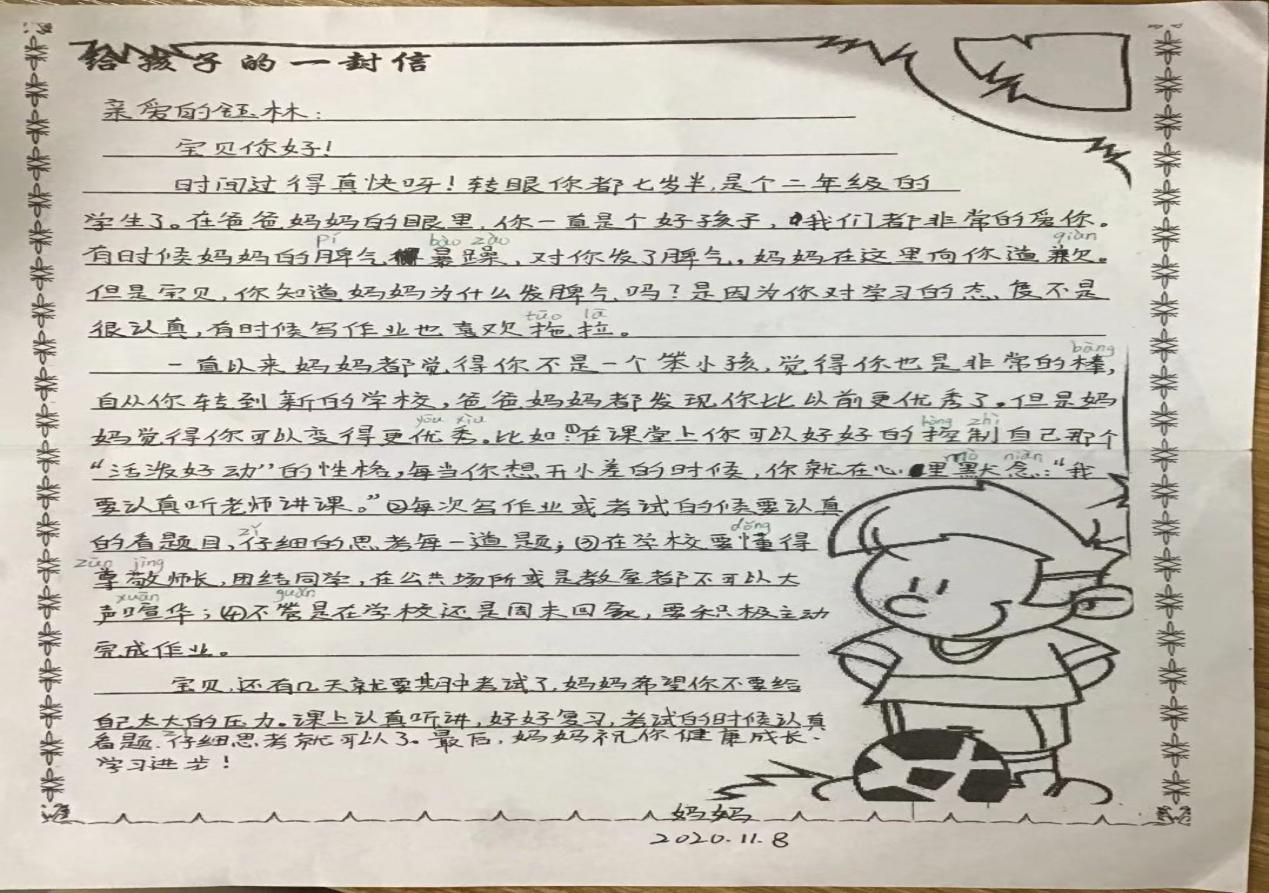 给孩子的一封信
亲爱的钰林：
宝贝你好！
时间过得真快呀！转眼你都七岁半，是个二年级的
学生了。在爸爸妈妈的眼里，你一直是个好孩子，我们都非常的爱你。
pí bào zào qiàn
有时候妈妈的脾气暴躁，对你发了脾气，妈妈在这里向你道歉。
但是宝贝，你知道妈妈为什么发脾气吗？是因为你对学习的态度不是
tūo lā
很认真，有时候写作业也喜欢拖拉。
bàng
一直以来妈妈都觉得你不是一个笨小孩，觉得你也是非常的棒，
自从你转到新的学校，爸爸妈妈都发现你比以前更优秀了。但是妈
yōu xiù kòng zhì
妈觉得你可以变得更优秀。比如：①在课堂上你可以好好的控制自己那个
mò niàn
“活泼好动”的性格，每当你想开小差的时候，你就在心里默念：“我
要认真听老师讲课。”②每次写作业或考试的候要认真
zǐ dǒng
的看题目，仔细的思考每一道题；③在学校要懂得
zūn jìng
尊敬师长，团结同学，在公共场所或是教室都不可以大
xuān guǎn
声喧华；④不管是在学校还是周末回家，要积极主动
完成作业。
宝贝，还有几天就要期中考试了，妈妈希望你不要给
自己太大的压力。课上认真听讲，好好复习，考试的时候认真
看题、仔细思考就可以了。最后，妈妈祝你健康成长、
学习进步！
妈妈
2020.11.8